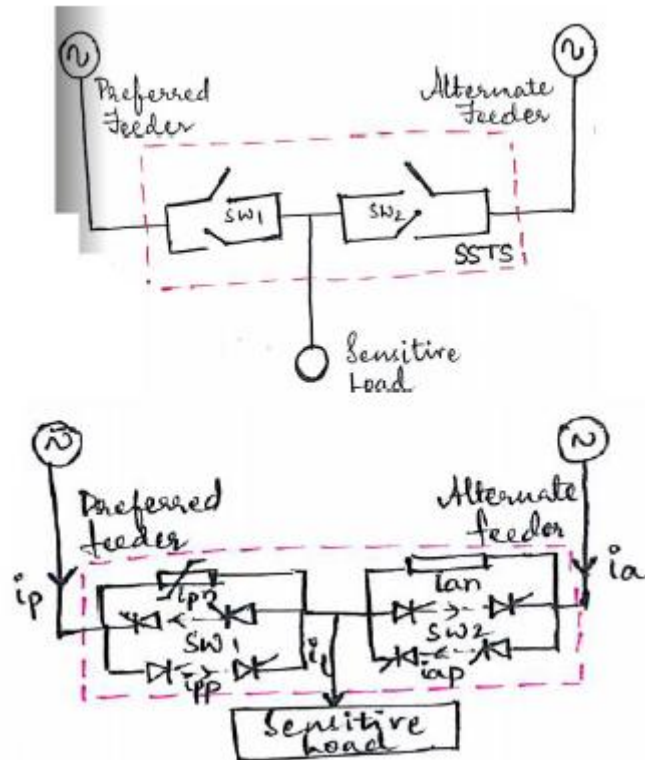 Preferred
Feeder
Alternate
Feeder
SW1
SW2
SSTS
Sensitive
Load
Preferred
feeder
Alternate
feeder
ip
ia
ipn
ian
SW1
SW2
il
ipp
iap
Sensitive
Load